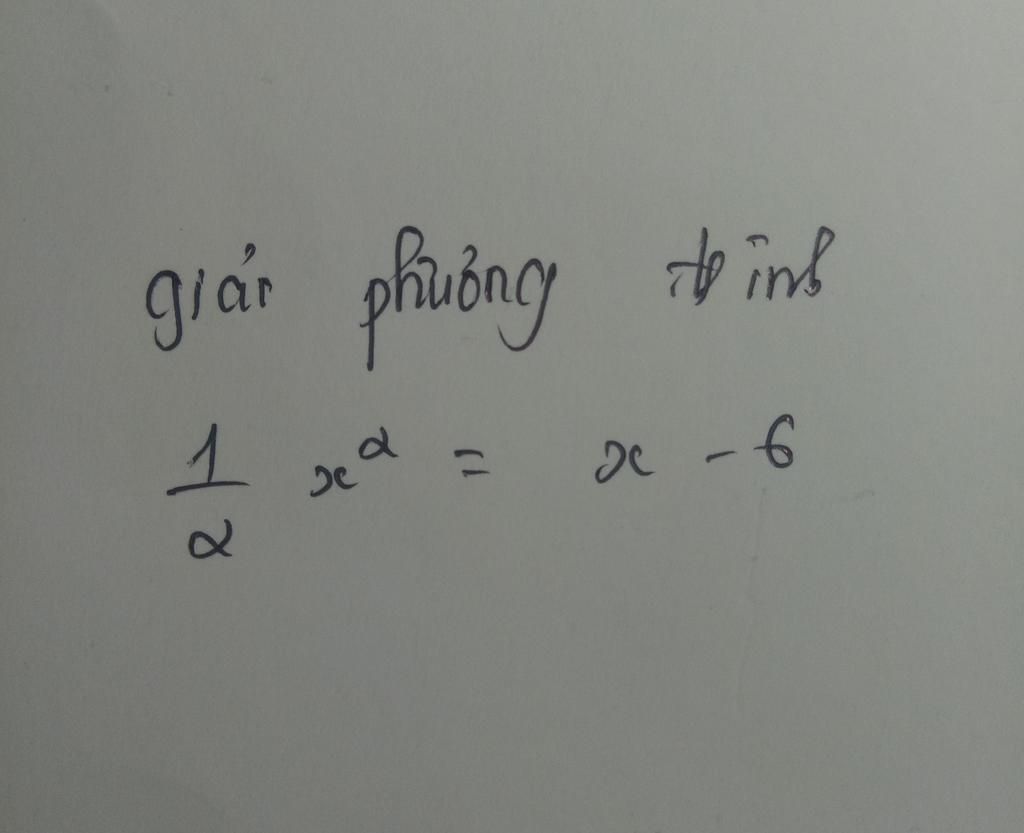 giải phương trình
1/α x^α = x - 6